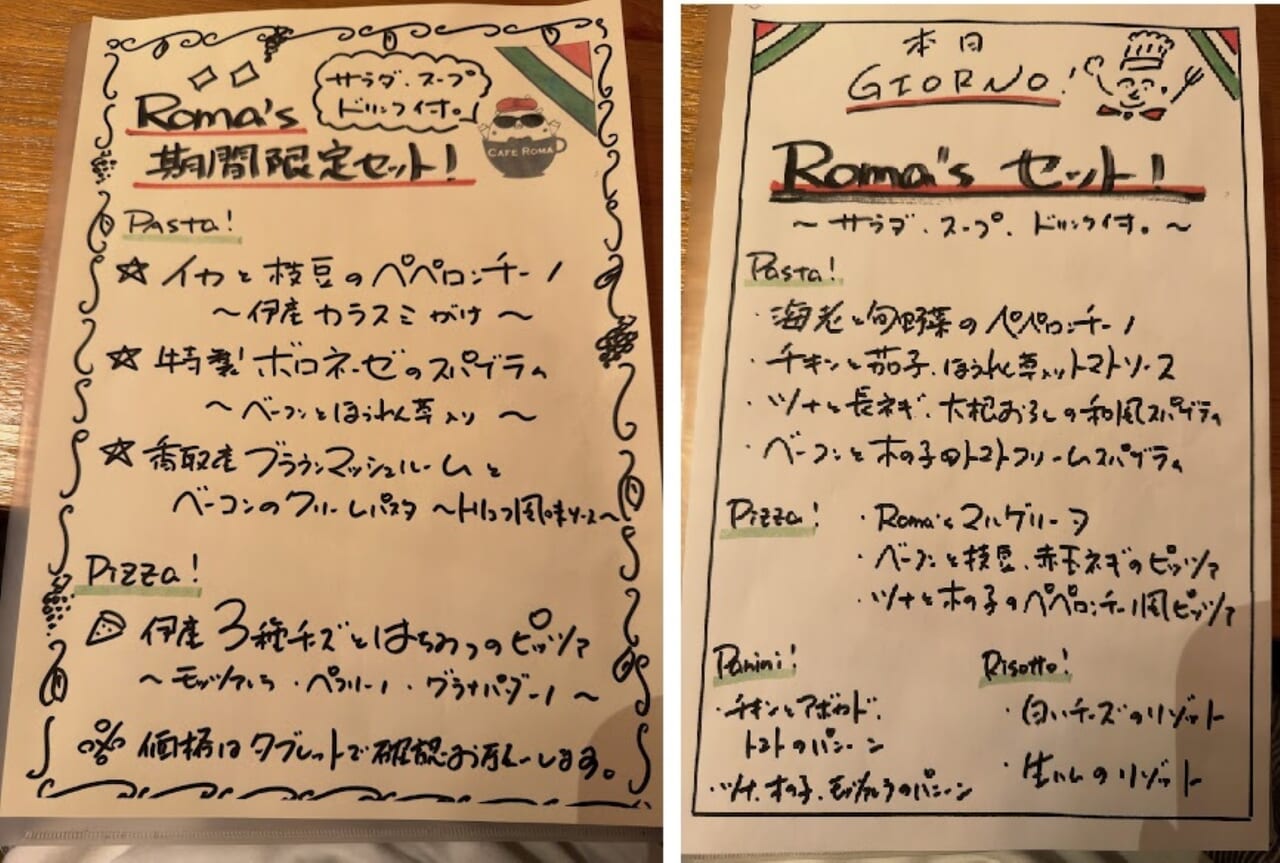 サラダ.スープ
ドリンク付。
Roma's
期間限定セット!
CAFE ROMA
Pasta!
☆イカと枝豆のペペロンチーノ
～伊産カラスミがけ～
☆特製ボロネーゼのスパゲティ
～ベーコンとほうれん草入り～
☆香取産ブラウンマッシュルームと
ベーコンのクリームパスタ ～トリュフ風味ソース～
Pizza!
伊産3種チーズとはちみつのピッツァ
～モッツァレラ・ペコリーノ・グラナパダーノ～
価格はタブレットで確認お願いします。
本日
GIORNO!
Roma's セット!
～サラダ.スープ.ドリンク付。～
Pasta!
・海老と旬野菜のペペロンチーノ
・チキンと茄子.ほうれん草入りトマトソース
・ツナと長ネギ.大根おろしの和風スパゲティ
・ベーコンと木の子のトマトクリームスパゲティ
Pizza!
・Roma's マルゲリータ
・ベーコンと枝豆.赤玉ネギのピッツァ
・ツナと木の子のペペロンチーノ風ピッツァ
Panini!
・チキンとアボカド.
トマトのパニーニ
・ツナ.木の子.モッツァレラのパニーニ
Risotto!
・白いチーズのリゾット
・生ハムのリゾット